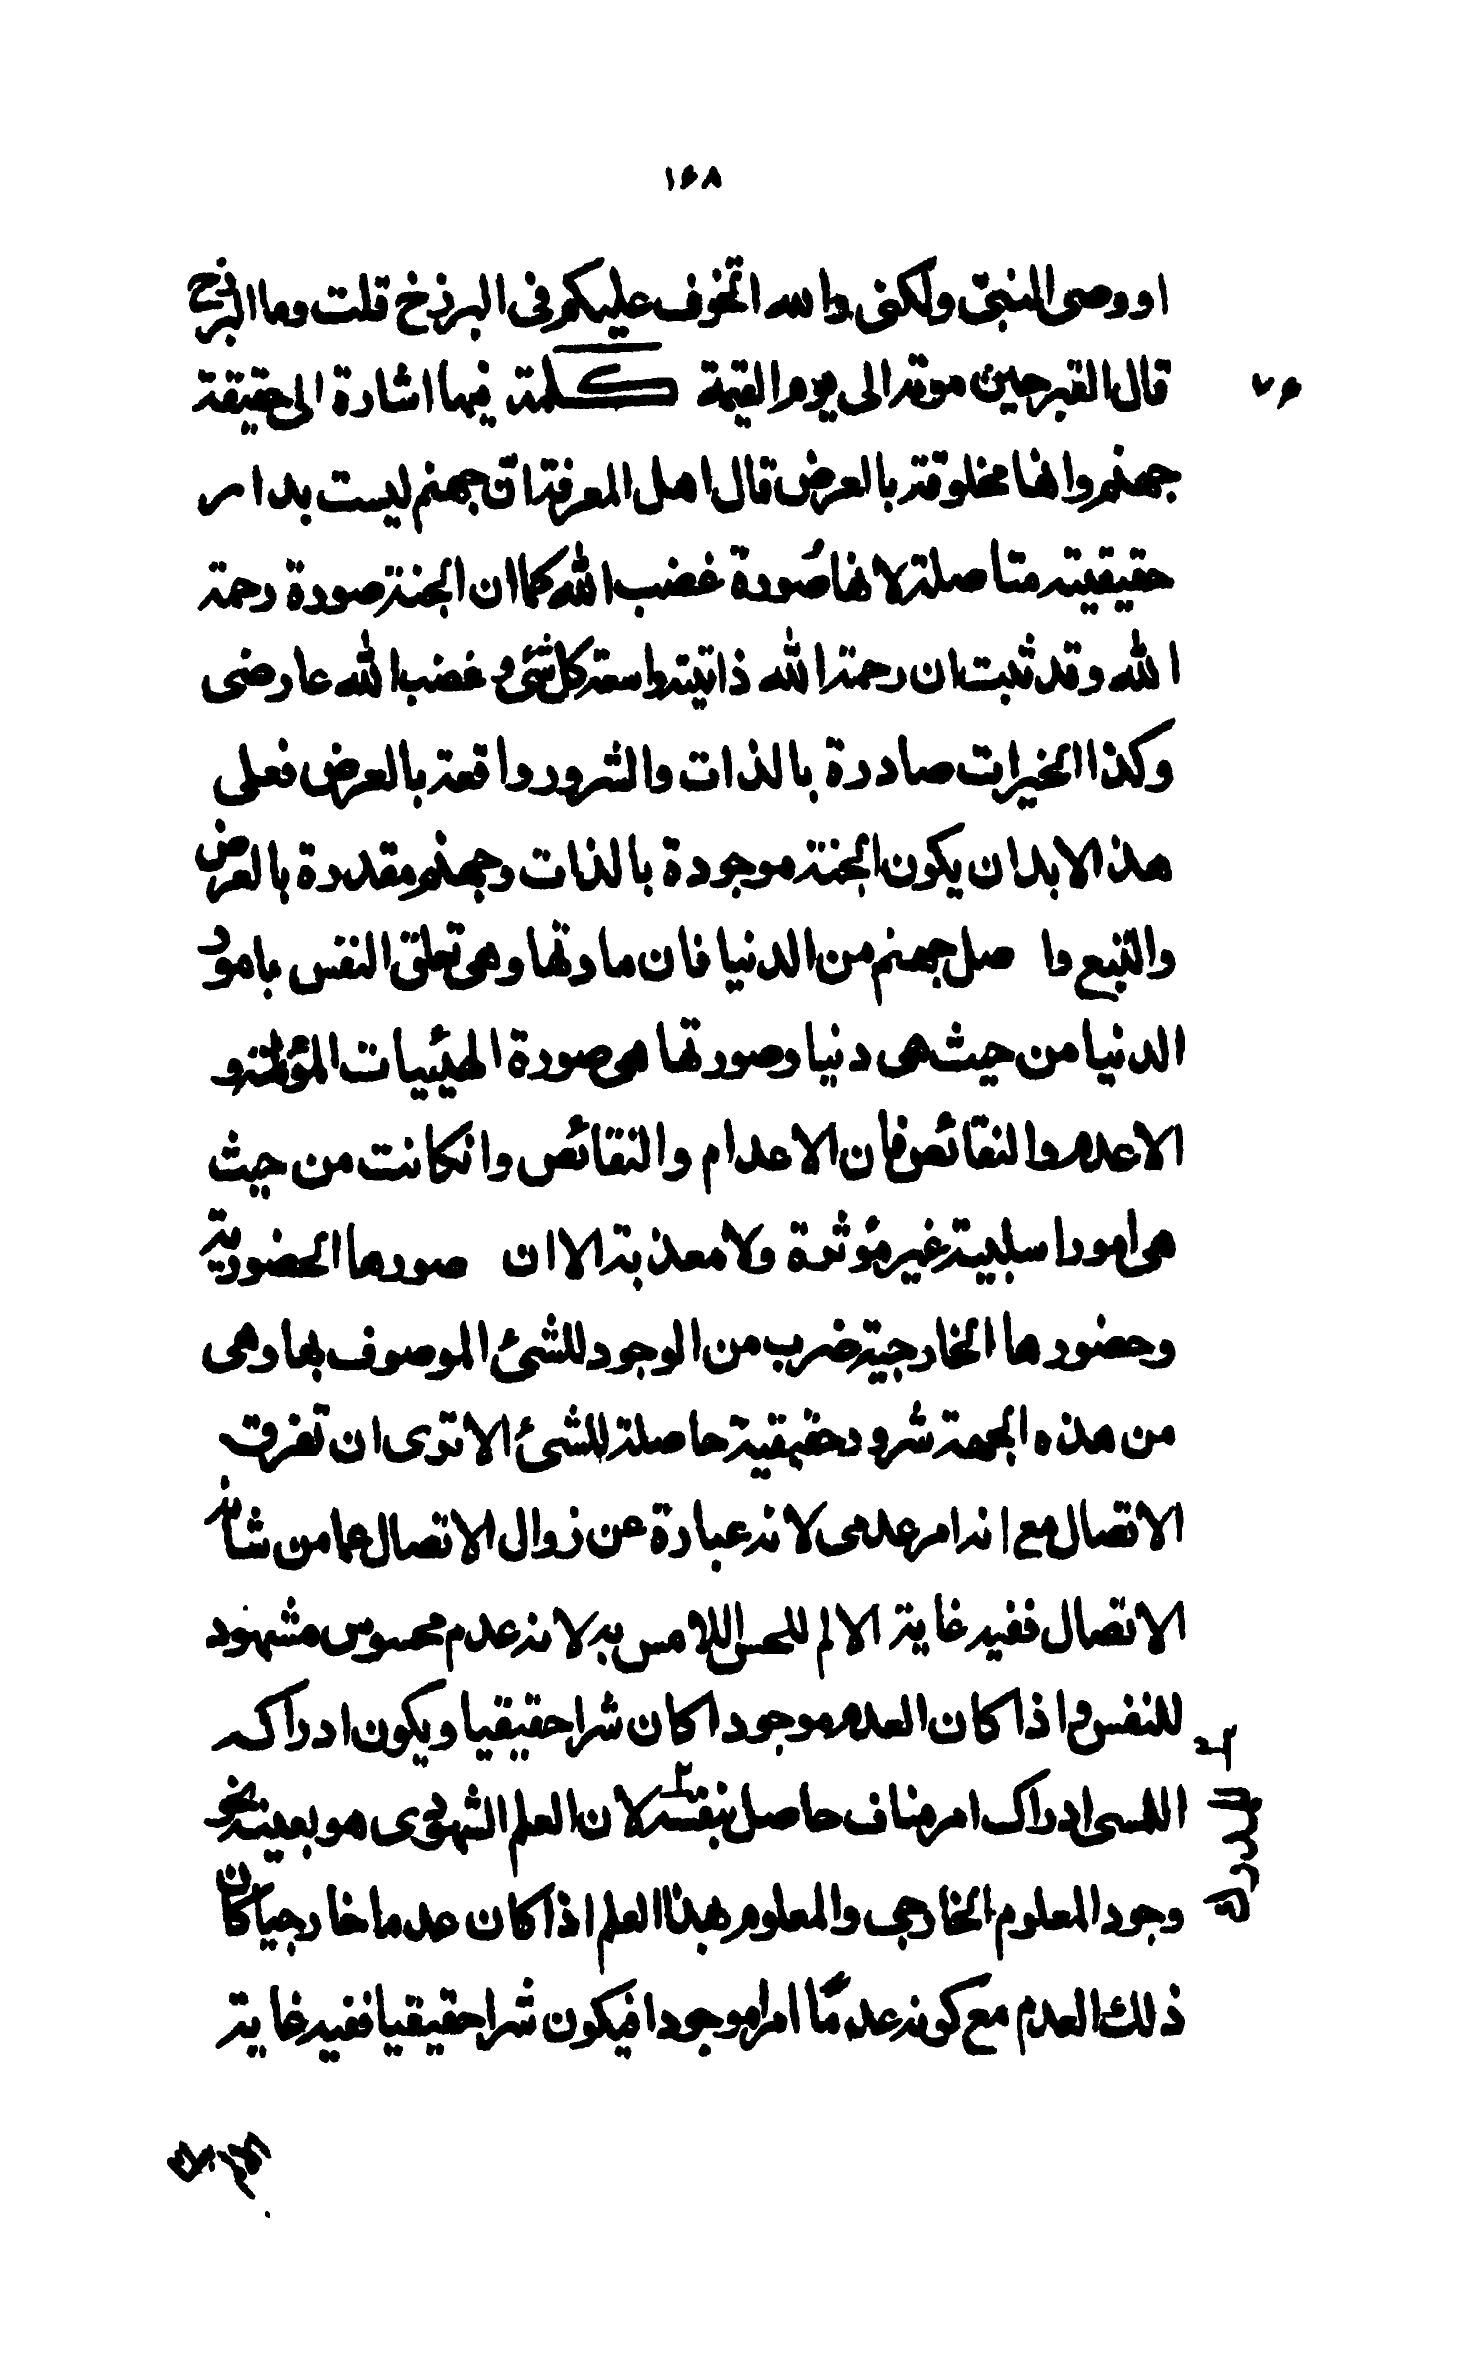 ١۶٨
او وصى النبىّ ولكنى والله اتخوف عليكم فى البرزخ قلت وما البرزخ
قال القبر حين موته الى يوم القيمة كلمة فيها اشارة الى حقيقة
٧۶
جهنم وانها مخلوقة بالعرض قال اهل المعرفة انّ جهنم ليست بدار
حقيقية متاصلة لانها صُورة غضب الله كما ان الجنة صورة رحمة
الله وقد ثبت ان رحمة الله ذاتية واسعة كل شئ و غضب الله عارضى
وكذا الخيرات صادرة بالذات والشرور واقعة بالعرض فعلى
هذا لابد ان يكون الجنة موجودة بالذات وجهنم مقدرة بالعرض
والتبع واصل جهنم من الدنيا فان مادتها وهى تعلق النفس بامور
الدنيا من حيث هى دنيا وصورتها هى صورة الهيئيات المؤلمة و
الاعدام والنقائص فان الاعدام والنقائص وانكانت من حيث
هى امورا سلبية غير مؤثرة ولا معذبة الا ان صورها الحضورية
وحضورها الخارجية ضرب من الوجود للشئ الموصوف بها وهى
من هذه الجهة شرور حقيقية حاصلة للشئ الا ترى ان تفرق
الاتصال مع انه امر عدمى لانه عبارة عن زوال الاتصال عما من شانه
الاتصال ففيه غاية الالم للحس اللامس به لانه عدم محسوس مشهود
للنفس و اذا كان العدم موجودا كان شرا حقيقيا ويكون ادراكه
اللمسى ادراك امر مناف حاصل بنفسه لان العلم الشهودى هو بعينه نحو
وجود المعلوم الخارجى والمعلوم بهذا العلم اذا كان عدما خارجيا كان
ذلك العدم مع كونه عدمًا امرا موجودا فيكون شرا حقيقيا ففيه غاية